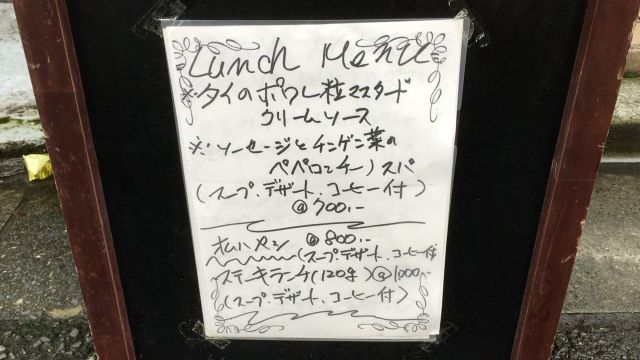 Lunch Menu
※タイのポワレ粒マスタード
クリームソース
※ソーセージとチンゲン菜の
ペペロンチーノスパ
(スープ.デザート.コーヒー付)
@700.-
@800.-
(スープ.デザート.コーヒー付
ステーキランチ(120g)@1000.-
(スープ.デザート.コーヒー付)